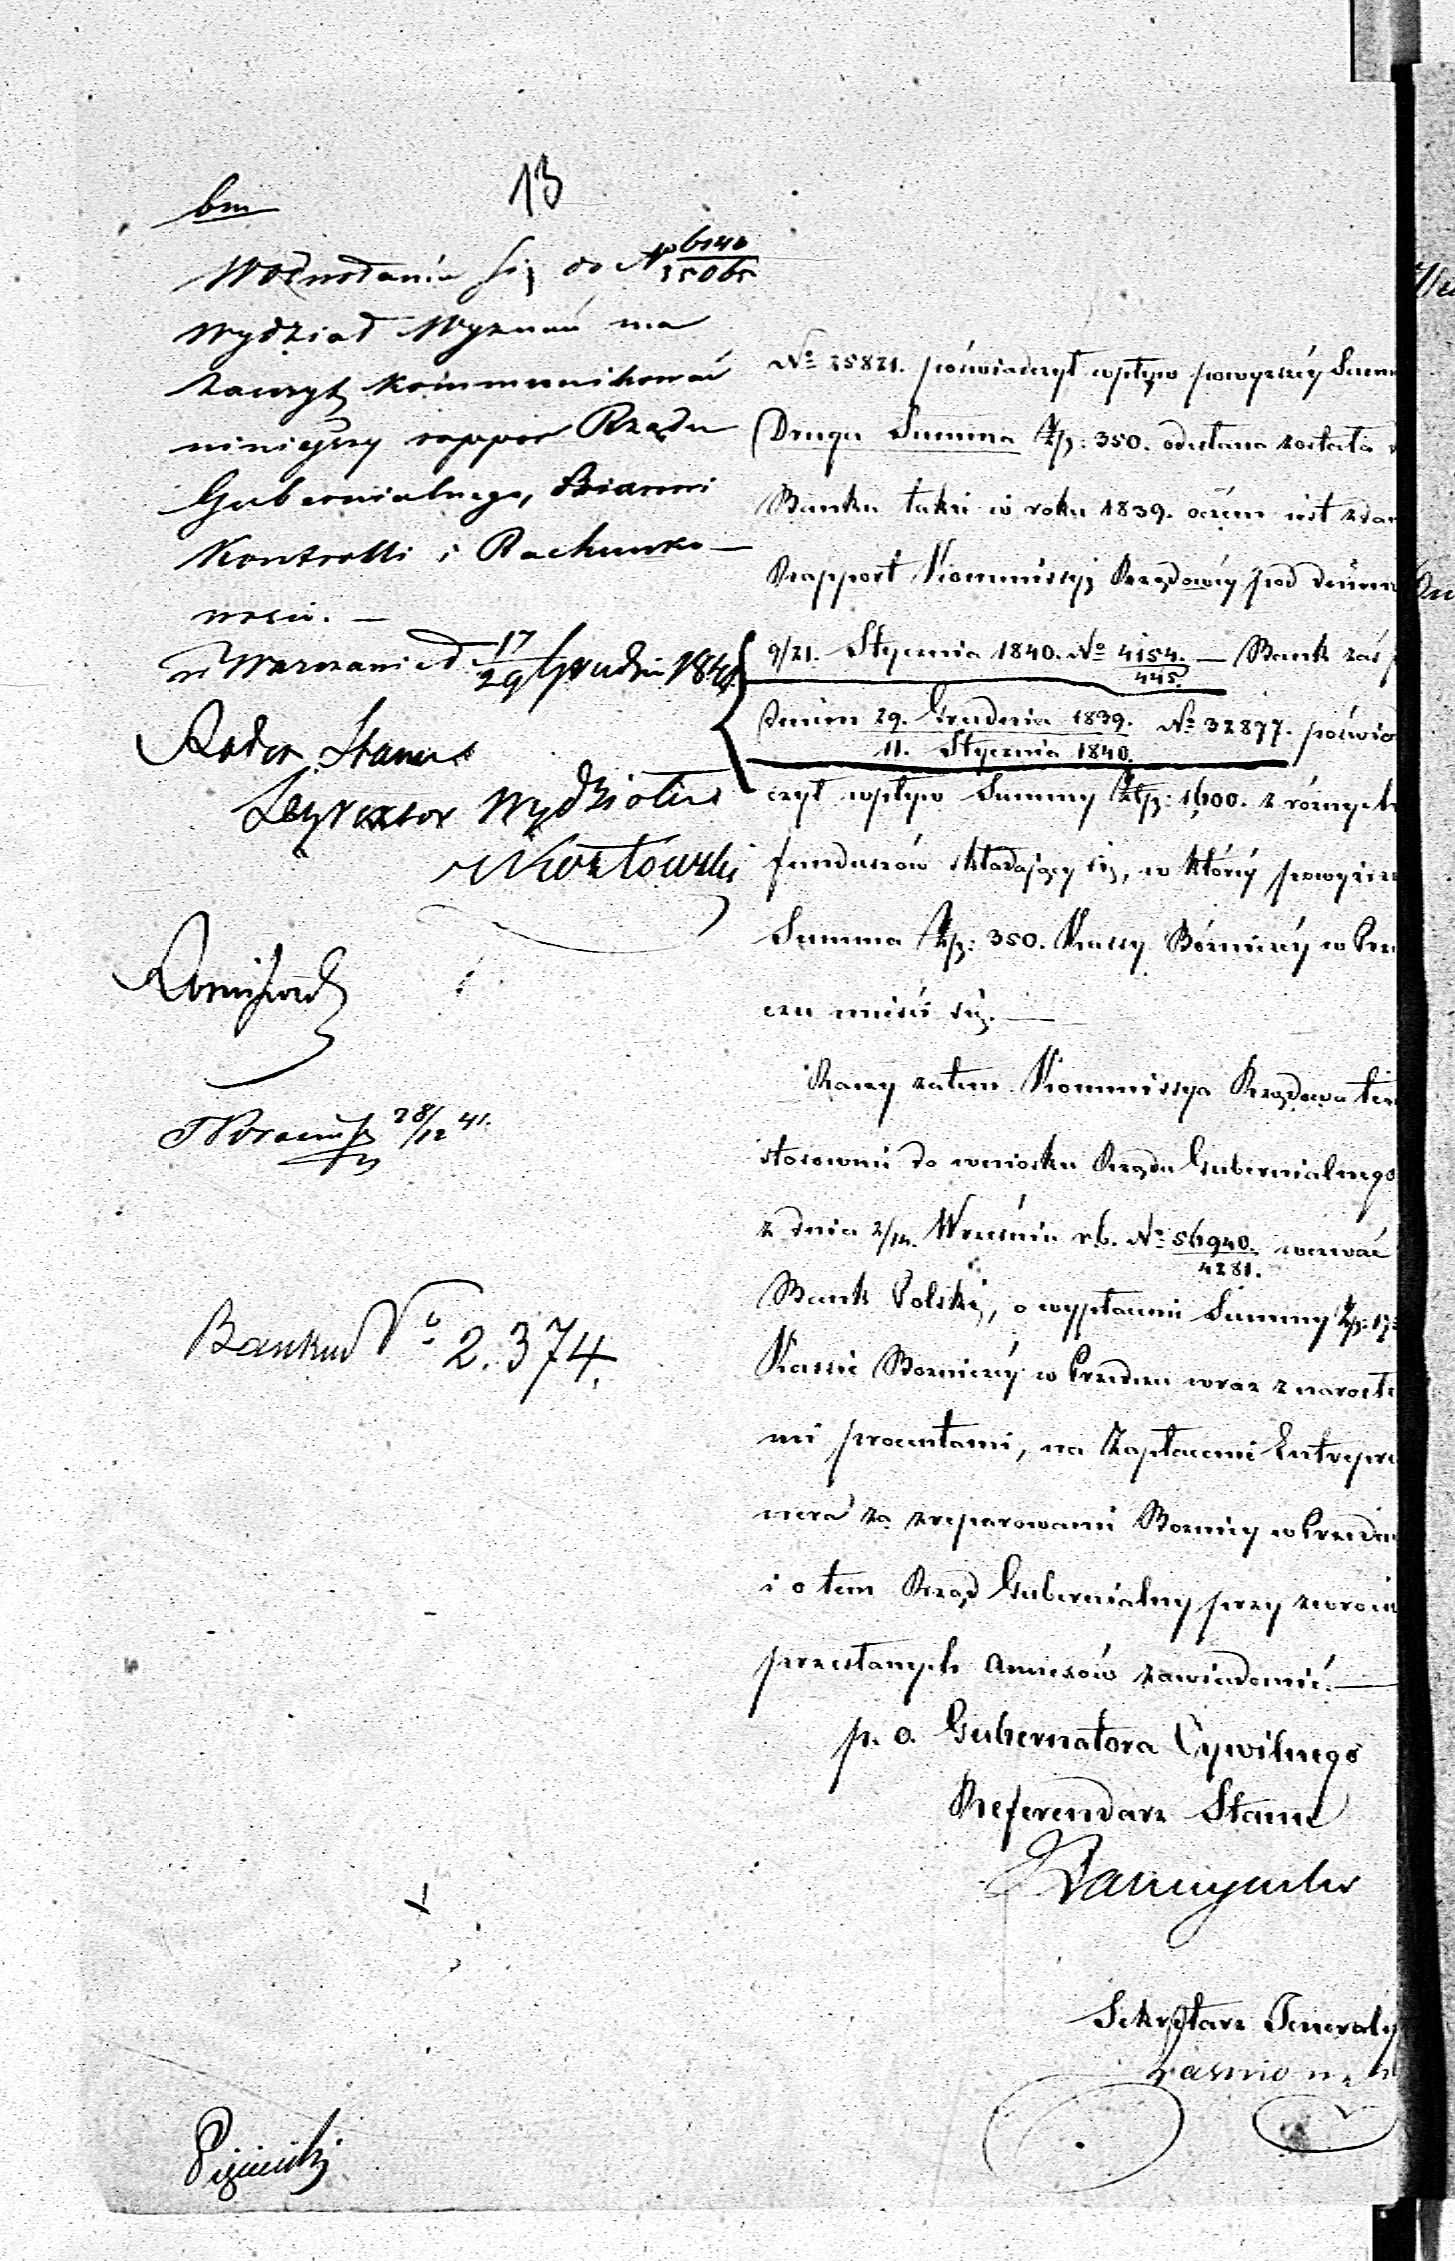 13
bm
W odwołaniu się do No 6140/35065
Wydział Wyznań ma
zaszczyt kommunikować
niniejszy rapport Rządu
Gubernialnego, Biurowi
Kontrolli i Rachunko-
wości. —
w Warszawie d. 17/29 Grudnia 1841
Radca Stanu
Dyrektor Wydziału
Kozłowski
28/12 41.
Banku No 2.374.
No 25821. poświadczył wpływ powyższéj Summ
Druga Summa Złp: 350. odesłana została d
Banku także w roku 1839. o czém jest zdan
Rapport Kommissyi Rządowéj pod dniem
9/21. Stycznia 1840. No 4154./445. — Bank zaś p
dniem 29. Grudnia 1839./11. Stycznia 1840. No 32877. poświad
czył wpływ Summy Złp: 1,600. z różnych
funduszów składający się, w któréj powyższa
Summa Złp: 350. Kassy Bóżniczéj w Prze
czu mieści się. —
Raczy zatem Kommissya Rządowa też
stosownie do wniosku Rządu Gubernialnego
z dnia 2/14. Września r.b. No 56940./4281. wezwać
Bank Polski, o wypłacenie Summy Złp: 17
Kassie Bożniczéj w Przedczu wraz z narosłe
mi procentami, na Zapłacenie Entrepre
nera za zreparowanie Bożnicy w Przedcz
i o tem Rząd Gubernialny przy zwrocie
przesłanych Annexów zawiadomić. —
p. o. Gubernatora Cywilnego
Referendarz Stanu
Sekretarz Jeneralny